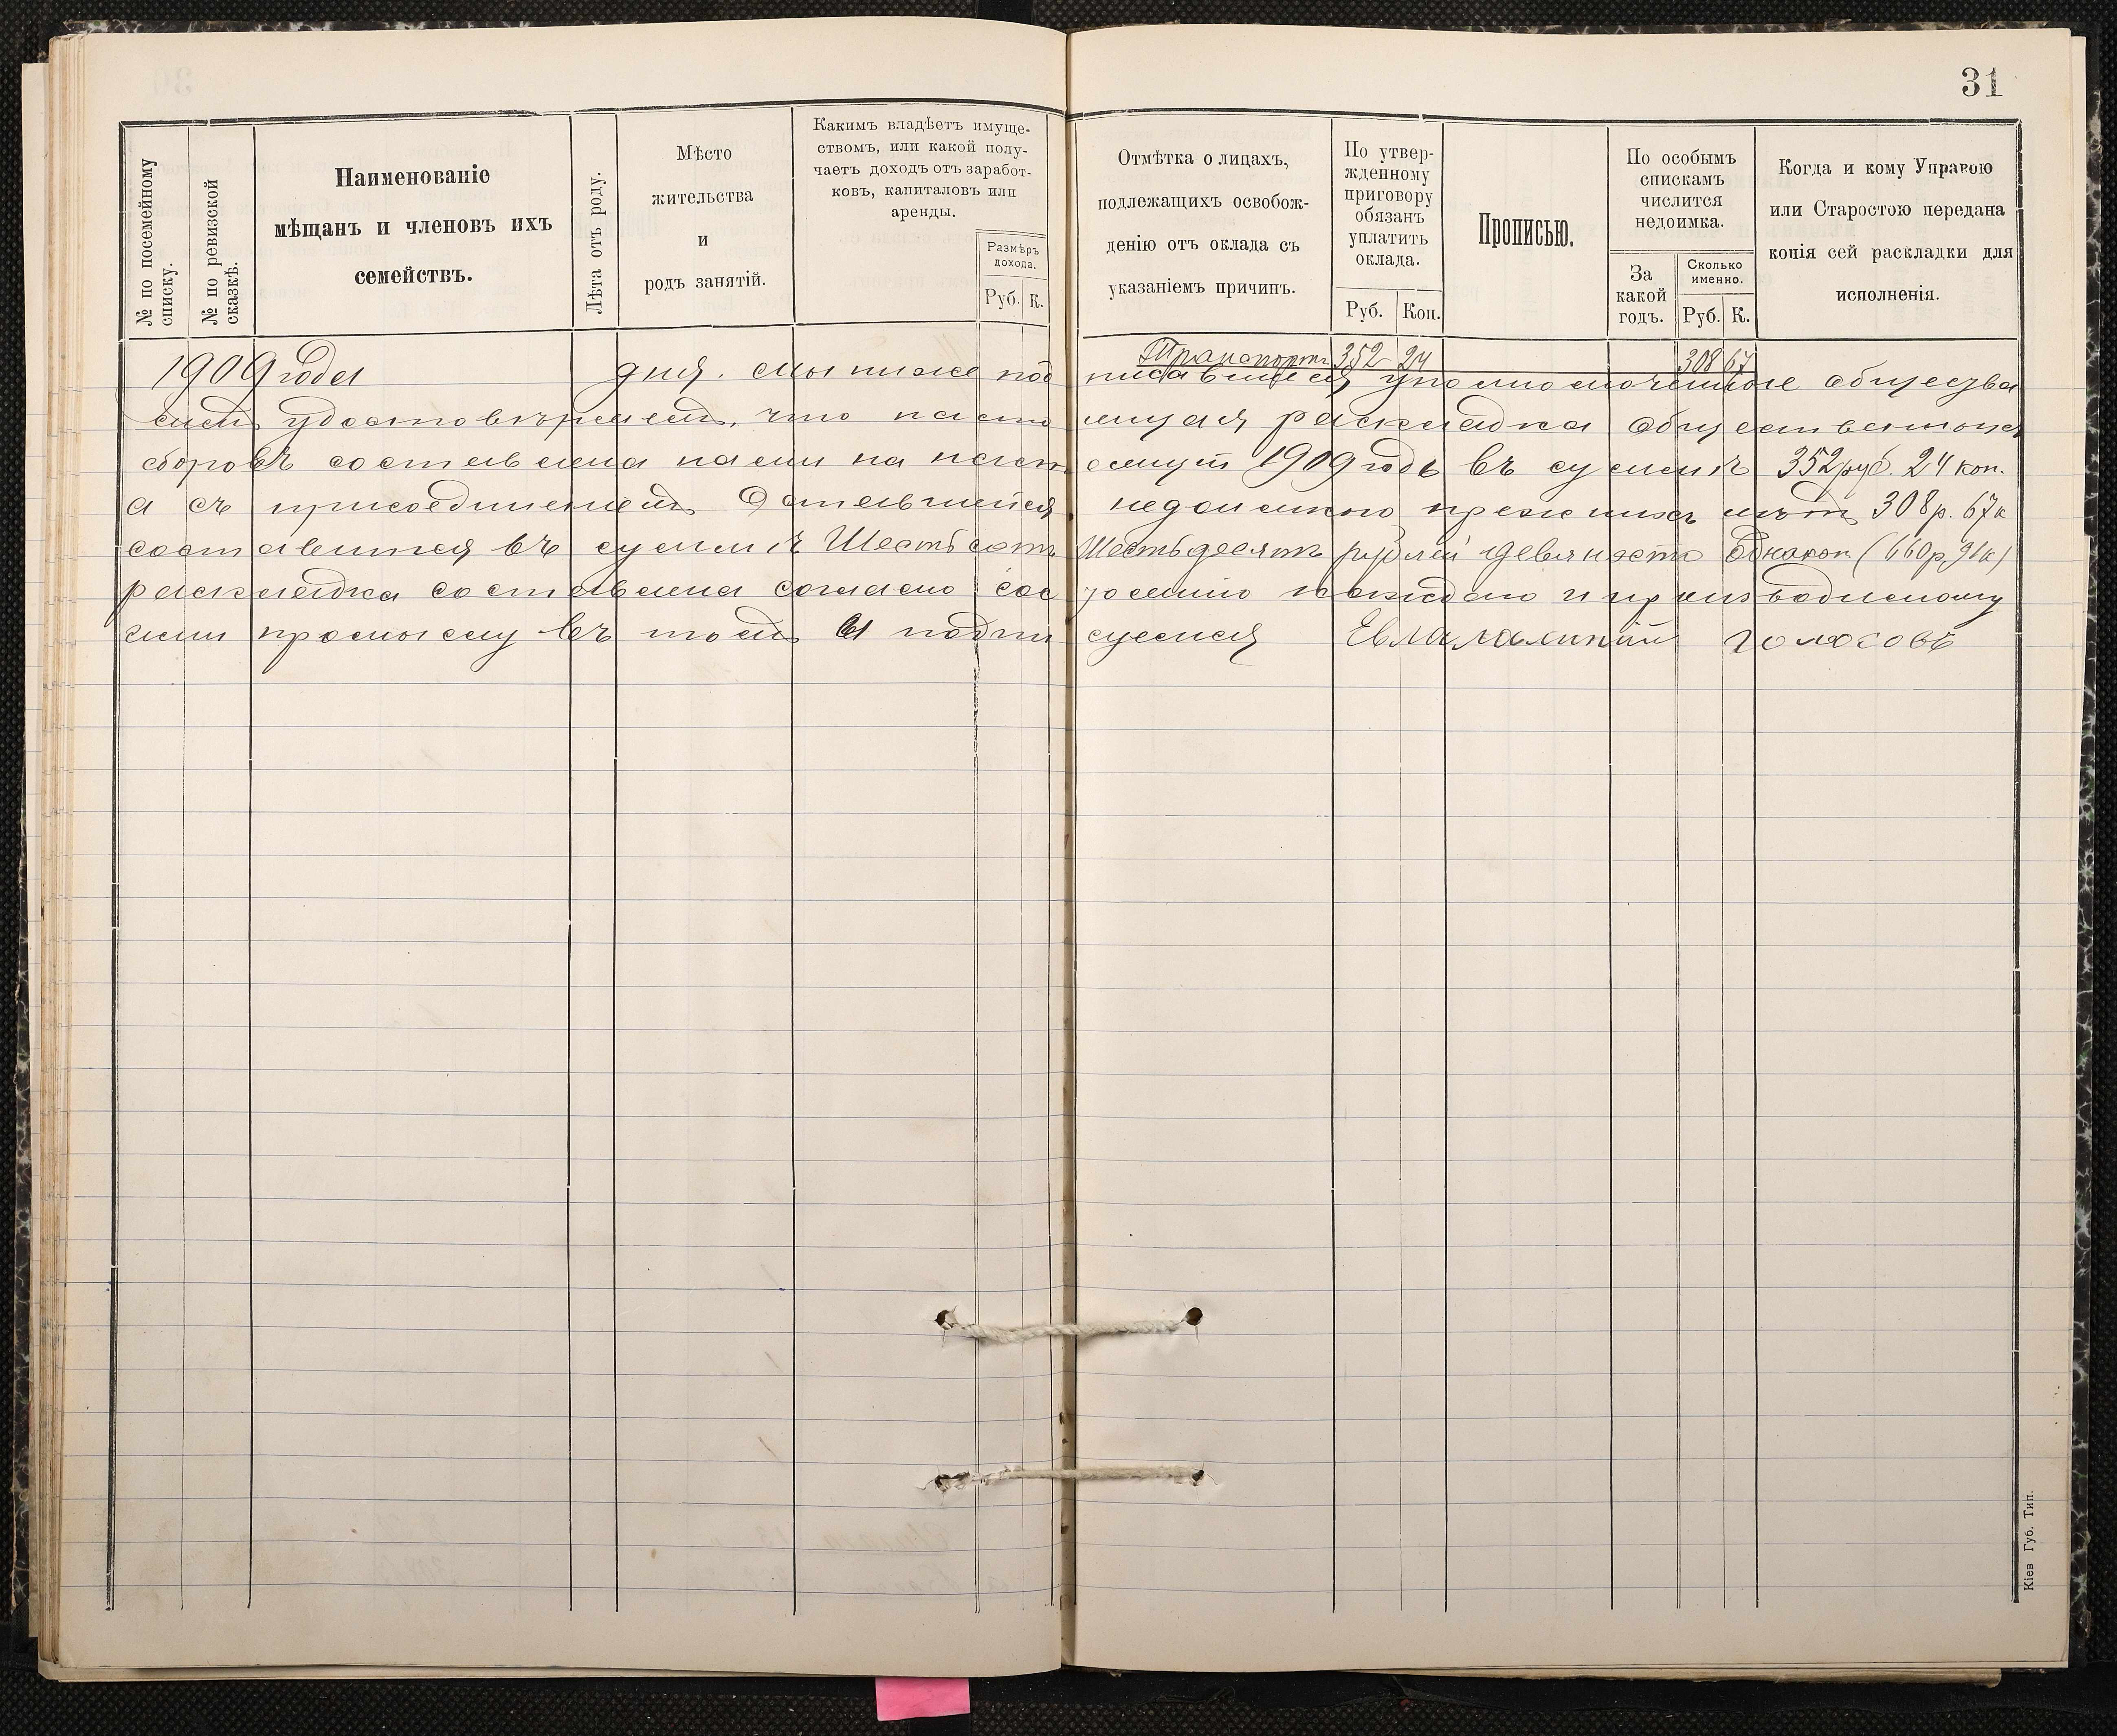 31
№ по посемейному
списку.
№ по ревизской
сказкѣ.
Наименованіе
мѣщанъ и членовъ ихъ
семействъ.
Лѣта отъ роду.
Мѣсто
жительства
и
родъ занятій.
Какимъ владѣетъ имуще-
ствомъ, или какой полу-
чаетъ доходъ отъ заработ-
ковъ, капиталовъ или
аренды.
Размѣръ
дохода.
Руб. К.
Отмѣтка о лицахъ,
подлежащихъ освобож-
денію отъ оклада съ
указаніемъ причинъ.
По утвер-
жденному
приговору
обязанъ
уплатить
оклада.
Руб. Коп.
Прописью.
По особымъ
спискамъ
числится
недоимка.
За
какой
годъ.
Сколько
именно.
Руб. К.
Когда и кому Управою
или Старостою передана
копія сей раскладки для
исполненія.
Транспортъ 352 24 308 67
1909 года дня. мы ниже под писавшіеся уполномоченные общества
симъ удостовѣряемъ, что насто ящая раскладка общественныхъ
сборовъ составлена нами на наст оящій 1909 годъ въ суммѣ 352 руб. 24 коп.
а съ присоединеніемъ Оставшейся недоимкою прежнихъ лѣтъ 308 р. 67 к
составится въ суммѣ Шестьсотъ Шестьдесятъ рублей девяносто Одна коп (660 р 91 к)
раскладка составлена согласно сос
сему въ томъ и подпи суемся голосовъ
Кіев Губ. Тип.